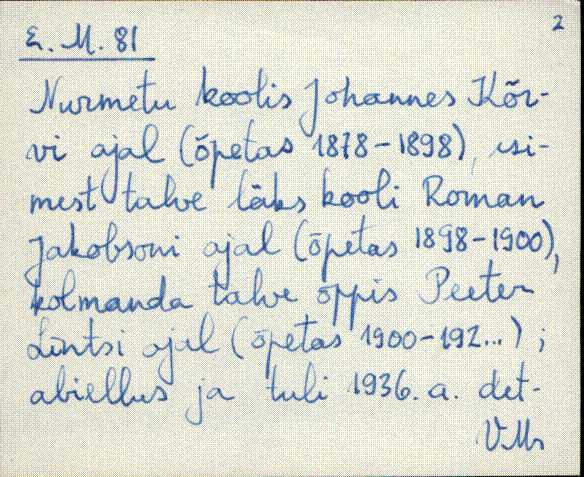 2
E. M. 81
Nurmetu koolis Johannes Kõr-
vi ajal (õpetas 1878-1898), esi-
mest talve läks kooli Roman
Jakobsoni ajal (õpetas 1898-1900),
kolmanda talve õppis Peeter
Lintsi ajal (õpetas 1900-192...);
abiellus ja tuli 1936. a. det-
VMs